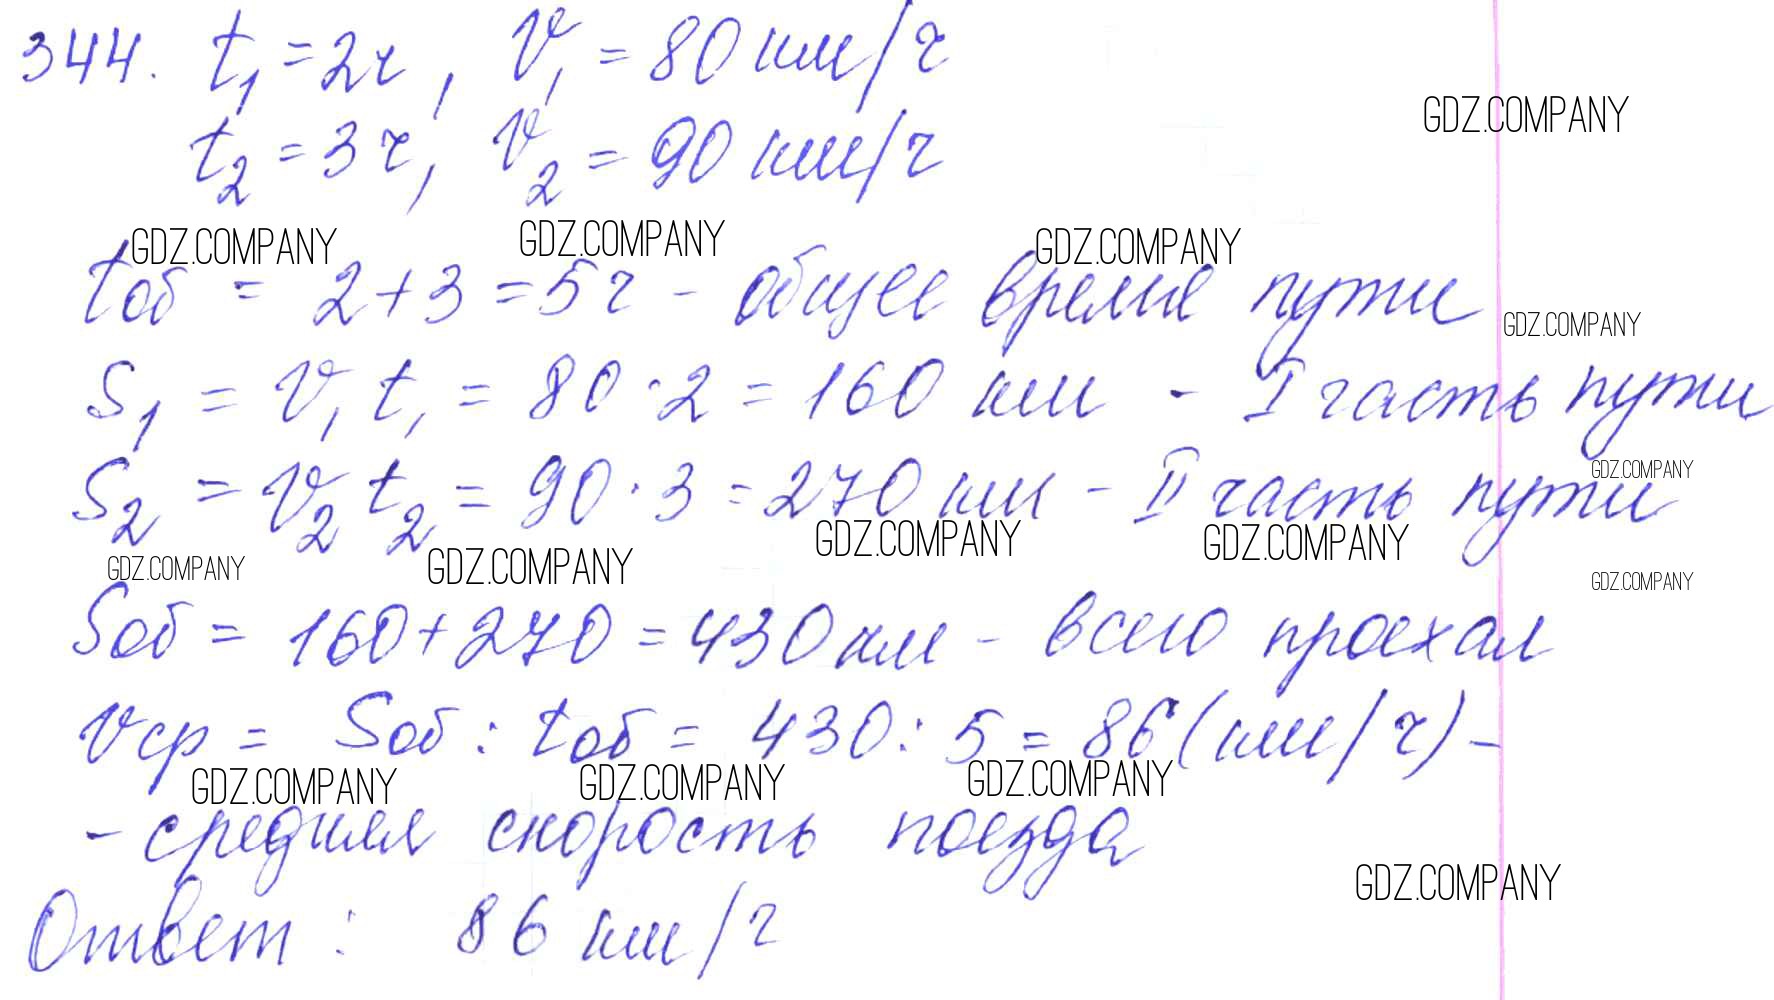 344. t₁ = 2ч, V₁ = 80 км/ч
GDZ.COMPANY
t₂ = 3ч, V₂ = 90 км/ч
GDZ.COMPANY GDZ.COMPANY GDZ.COMPANY
tоб = 2 + 3 = 5 ч - общее время пути
GDZ.COMPANY
S₁ = V₁ t₁ = 80 · 2 = 160 км - I часть пути
GDZ.COMPANY
S₂ = V₂ t₂ = 90 · 3 = 270 км - II часть пути
GDZ.COMPANY GDZ.COMPANY GDZ.COMPANY GDZ.COMPANY
GDZ.COMPANY
Sоб = 160 + 270 = 430 км - всего проехал
Vср = Sоб : tоб = 430 : 5 = 86 (км/ч) -
GDZ.COMPANY GDZ.COMPANY GDZ.COMPANY
- средняя скорость поезда
GDZ.COMPANY
Ответ : 86 км/ч